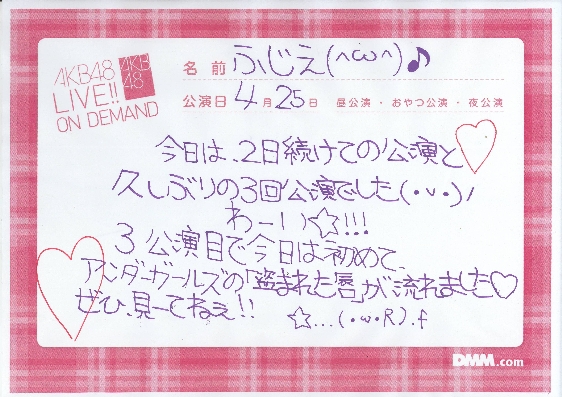 AKB48
LIVE!!
ON DEMAND
AKB
48
名前 ふじえ(^ω^)♪
公演日 4月25日 昼公演・おやつ公演・夜公演
今日は、2日続けての公演と♡
久しぶりの3回公演でした(・v・)ノ
わーい☆!!!
3公演目で今日は初めて、
アンダーガールズの「盗まれた唇」が流れました♡
ぜひ、見ーてねぇ!!
☆...(・ω・R).f
DMM.com